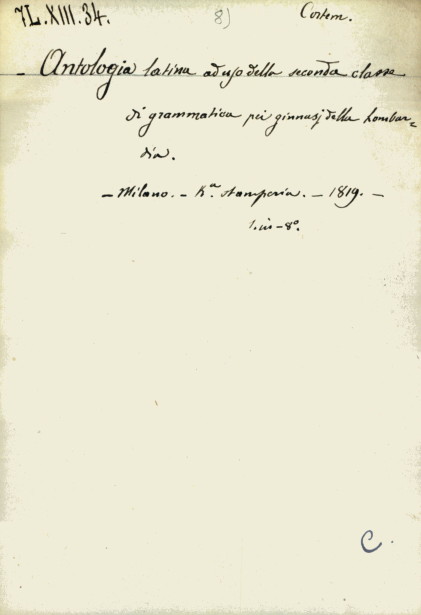 7L.XIII.34. 8) Cortem.
- Antologia latina ad uso della seconda classe
di grammatica pei ginnasj della Lombar=
dia.
- Milano. - R.ª stamperia. - 1819. -
1. in - 8º.
C.